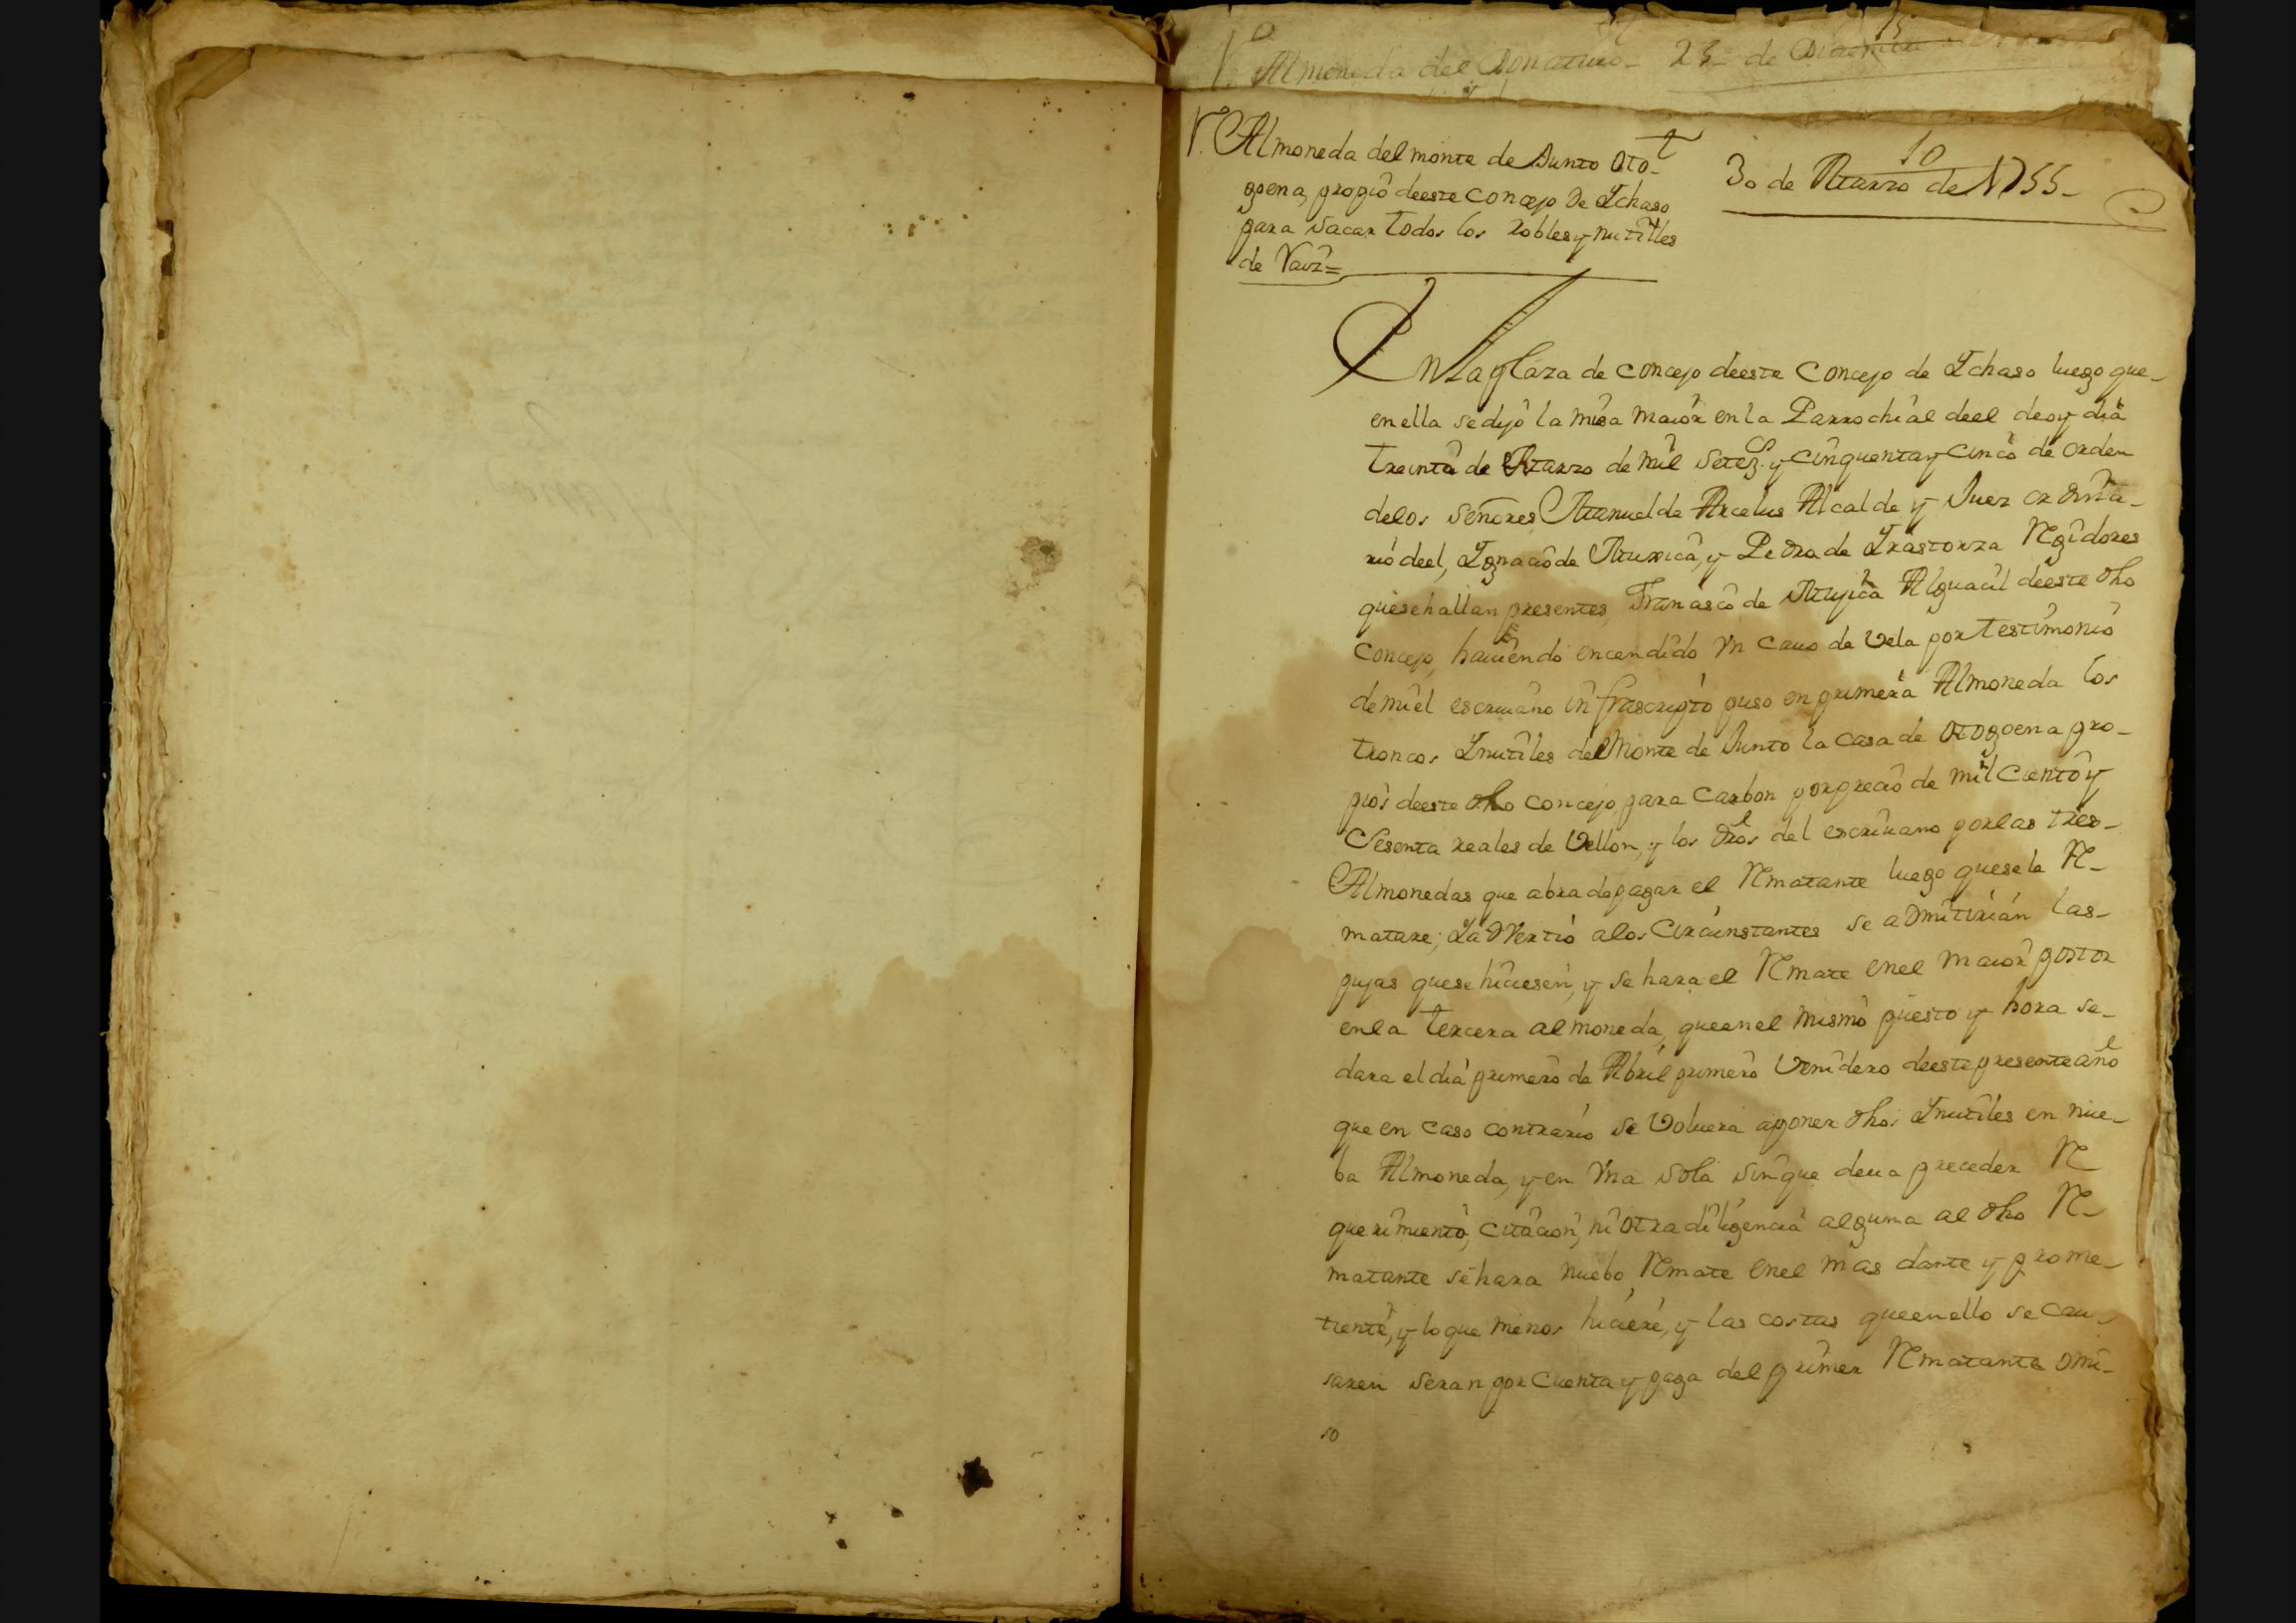 Almoneda del Donativo - 25 de Diziembre
V. Almoneda del monte de Junto Oto-
goena, propio deeste concejo de Ichaso
para sacar todos los robles ynutiles
de Raiz =
10
30 de Marzo de 1755 -
En la plaza de concejo deeste Concejo de Ichaso luego que-
enella sedijo la misa maior en la Parrochial deel deoy dia
treinta de Marzo de mil Setez.s y cinquenta y cinco de orden
delos señores Manuel de Arcelus Alcalde y Juez ordina-
rio deel, Ignacio de Muxica, y Pedro de Irastorza Regidores
quesehallan presentes, Francisco de Mujica Alguacil deeste dho
Concejo, haviendo encendido Vn cavo de Vela por testimonio
demi el escrivano infrascripto puso en primera Almoneda los
troncos Inutiles del Monte de Junto la casa de Otogoena pro-
pios deeste dho concejo para Carbon por precio de mil ciento y
Sesenta reales de Vellon, y los dros del escrivano por las tres-
Almonedas que abra de pagar el Rematante luego quesele Re-
matare; Y advertio alos Circunstantes se admitirian las-
pujas quese hiciesen, y se hara el Remate enel maior postor
enla tercera almoneda, queenel mismo puesto y hora se-
dara el dia primero de Abril primero Venidero deeste presente año
que en caso contrario se Volvera aponer dhos Inutiles en nue-
ba Almoneda, y en Vna sola sin que deva preceder Re
querimiento, citacion, ni otra diligencia alguna al dho Re-
matante se hara nuebo Remate enel mas dante y prome-
tiente, y lo que menos hiciere, y las costas queenello se cau-
saren seran por Cuenta y paga del primer Rematante omi-
so